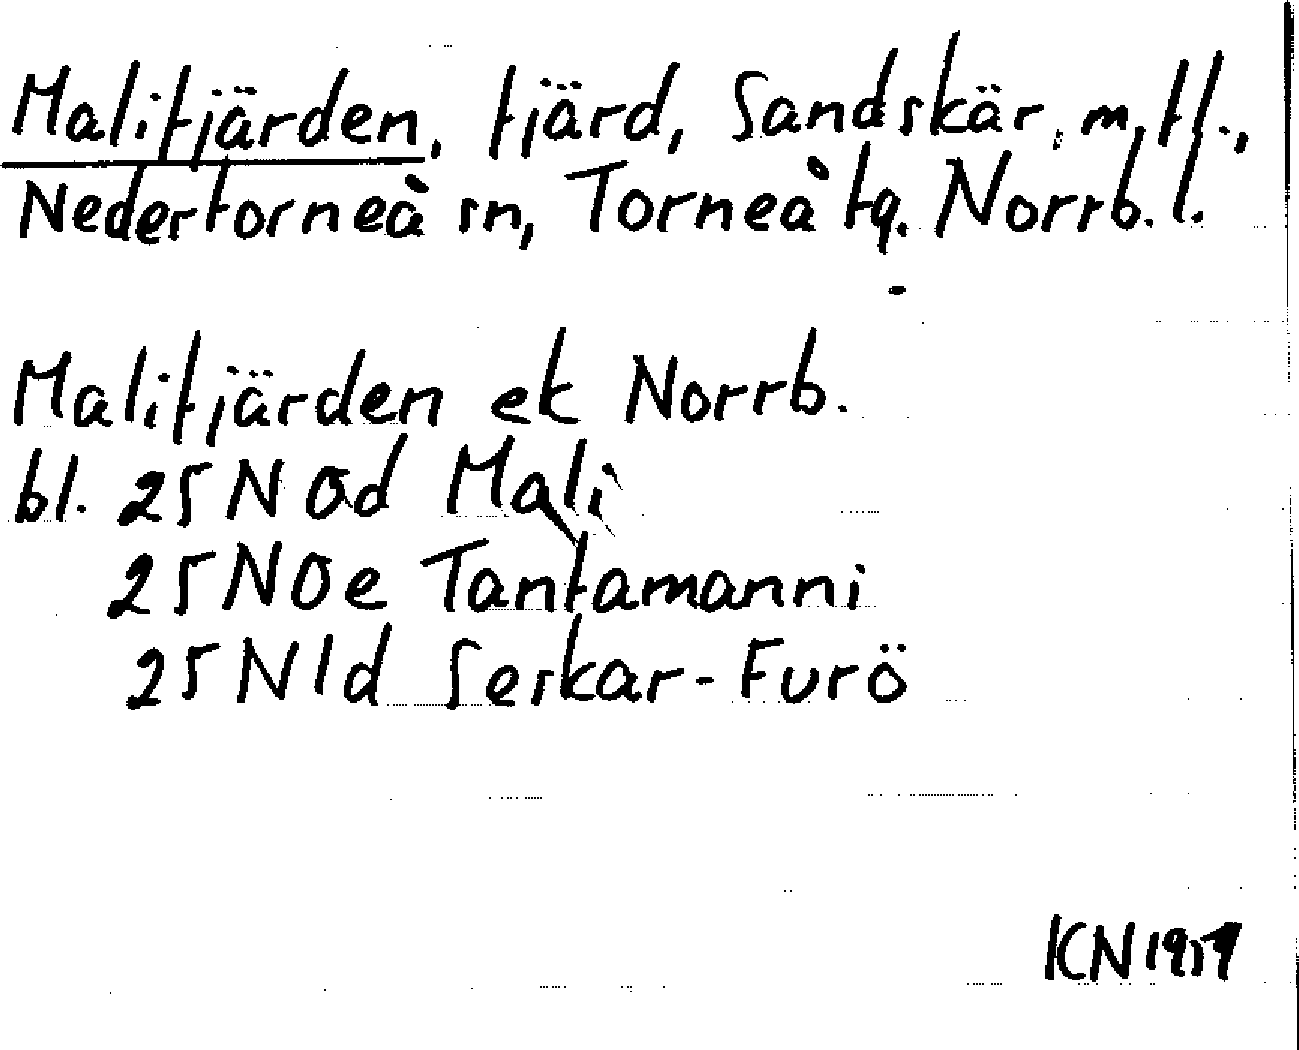 Malifjärden, fjärd, Sandskär m.fl.,
Nedertorneå sn, Torneå tg. Norrb. l.
Malifjärden ek Norrb.
bl. 25 N 0d Mali
25 N 0e Tantamanni
25 N 1d Seskar-Furö
KCN